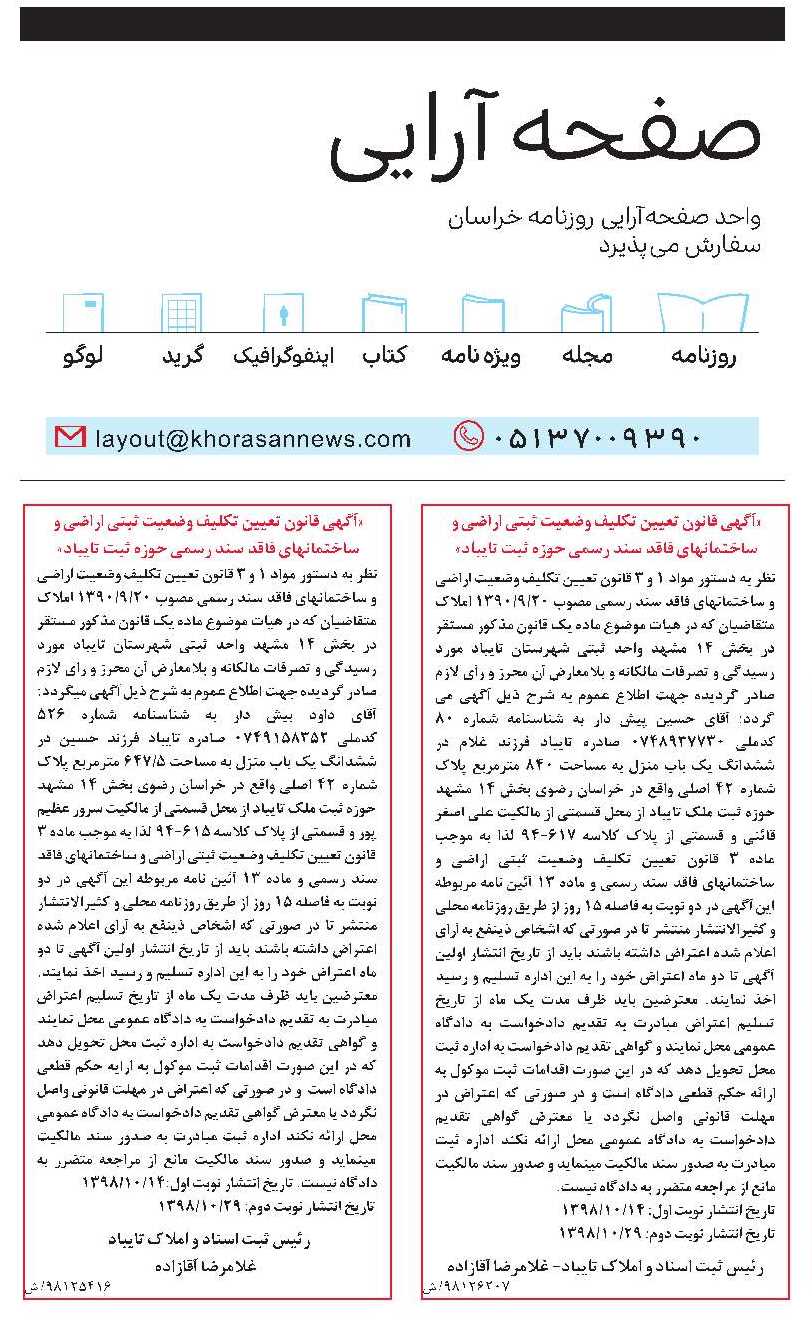 صفحه آرایی
واحد صفحه‌آرایی روزنامه خراسان
سفارش می‌پذیرد
روزنامه مجله ویژه نامه کتاب اینفوگرافیک گرید لوگو
۰۵۱۳۷۰۰۹۳۹۰ layout@khorasannews.com
«آگهی قانون تعیین تکلیف وضعیت ثبتی اراضی و
ساختمانهای فاقد سند رسمی حوزه ثبت تایباد»
نظر به دستور مواد ۱ و ۳ قانون تعیین تکلیف وضعیت اراضی
و ساختمانهای فاقد سند رسمی مصوب ۱۳۹۰/۹/۲۰ املاک
متقاضیان که در هیات موضوع ماده یک قانون مذکور مستقر
در بخش ۱۴ مشهد واحد ثبتی شهرستان تایباد مورد
رسیدگی و تصرفات مالکانه و بلامعارض آن محرز و رای لازم
صادر گردیده جهت اطلاع عموم به شرح ذیل آگهی می
گردد: آقای حسین پیش دار به شناسنامه شماره ۸۰
کدملی ۰۷۴۸۹۳۷۷۳۰ صادره تایباد فرزند غلام در
ششدانگ یک باب منزل به مساحت ۸۴۰ مترمربع پلاک
شماره ۴۲ اصلی واقع در خراسان رضوی بخش ۱۴ مشهد
حوزه ثبت ملک تایباد از محل قسمتی از مالکیت علی اصغر
قائنی و قسمتی از پلاک کلاسه ۶۱۷-۹۴ لذا به موجب
ماده ۳ قانون تعیین تکلیف وضعیت ثبتی اراضی و
ساختمانهای فاقد سند رسمی و ماده ۱۳ آئین نامه مربوطه
این آگهی در دو نوبت به فاصله ۱۵ روز از طریق روزنامه محلی
و کثیرالانتشار منتشر تا در صورتی که اشخاص ذینفع به آرای
اعلام شده اعتراض داشته باشند باید از تاریخ انتشار اولین
آگهی تا دو ماه اعتراض خود را به این اداره تسلیم و رسید
اخذ نمایند. معترضین باید ظرف مدت یک ماه از تاریخ
تسلیم اعتراض مبادرت به تقدیم دادخواست به دادگاه
عمومی محل نمایند و گواهی تقدیم دادخواست به اداره ثبت
محل تحویل دهد که در این صورت اقدامات ثبت موکول به
ارائه حکم قطعی دادگاه است و در صورتی که اعتراض در
مهلت قانونی واصل نگردد یا معترض گواهی تقدیم
دادخواست به دادگاه عمومی محل ارائه نکند اداره ثبت
مبادرت به صدور سند مالکیت مینماید و صدور سند مالکیت
مانع از مراجعه متضرر به دادگاه نیست.
تاریخ انتشار نوبت اول: ۱۳۹۸/۱۰/۱۴
تاریخ انتشار نوبت دوم: ۱۳۹۸/۱۰/۲۹
رئیس ثبت اسناد و املاک تایباد- غلامرضا آقازاده
۹۸۱۲۶۲۰۷/ش
«آگهی قانون تعیین تکلیف وضعیت ثبتی اراضی و
ساختمانهای فاقد سند رسمی حوزه ثبت تایباد»
نظر به دستور مواد ۱ و ۳ قانون تعیین تکلیف وضعیت اراضی
و ساختمانهای فاقد سند رسمی مصوب ۱۳۹۰/۹/۲۰ املاک
متقاضیان که در هیات موضوع ماده یک قانون مذکور مستقر
در بخش ۱۴ مشهد واحد ثبتی شهرستان تایباد مورد
رسیدگی و تصرفات مالکانه و بلامعارض آن محرز و رای لازم
صادر گردیده جهت اطلاع عموم به شرح ذیل آگهی میگردد:
آقای داود بیش دار به شناسنامه شماره ۵۲۶
کدملی ۰۷۴۹۱۵۸۳۵۲ صادره تایباد فرزند حسین در
ششدانگ یک باب منزل به مساحت ۶۴۷/۵ مترمربع پلاک
شماره ۴۲ اصلی واقع در خراسان رضوی بخش ۱۴ مشهد
حوزه ثبت ملک تایباد از محل قسمتی از مالکیت سرور عظیم
پور و قسمتی از پلاک کلاسه ۶۱۵-۹۴ لذا به موجب ماده ۳
قانون تعیین تکلیف وضعیت ثبتی اراضی و ساختمانهای فاقد
سند رسمی و ماده ۱۳ آئین نامه مربوطه این آگهی در دو
نوبت به فاصله ۱۵ روز از طریق روزنامه محلی و کثیرالانتشار
منتشر تا در صورتی که اشخاص ذینفع به آرای اعلام شده
اعتراض داشته باشند باید از تاریخ انتشار اولین آگهی تا دو
ماه اعتراض خود را به این اداره تسلیم و رسید اخذ نمایند.
معترضین باید ظرف مدت یک ماه از تاریخ تسلیم اعتراض
مبادرت به تقدیم دادخواست به دادگاه عمومی محل نمایند
و گواهی تقدیم دادخواست به اداره ثبت محل تحویل دهد
که در این صورت اقدامات ثبت موکول به ارایه حکم قطعی
دادگاه است و در صورتی که اعتراض در مهلت قانونی واصل
نگردد یا معترض گواهی تقدیم دادخواست به دادگاه عمومی
محل ارائه نکند اداره ثبت مبادرت به صدور سند مالکیت
مینماید و صدور سند مالکیت مانع از مراجعه متضرر به
دادگاه نیست. تاریخ انتشار نوبت اول:۱۳۹۸/۱۰/۱۴
تاریخ انتشار نوبت دوم: ۱۳۹۸/۱۰/۲۹
رئیس ثبت اسناد و املاک تایباد
غلامرضا آقازاده
۹۸۱۲۵۴۱۶/ش